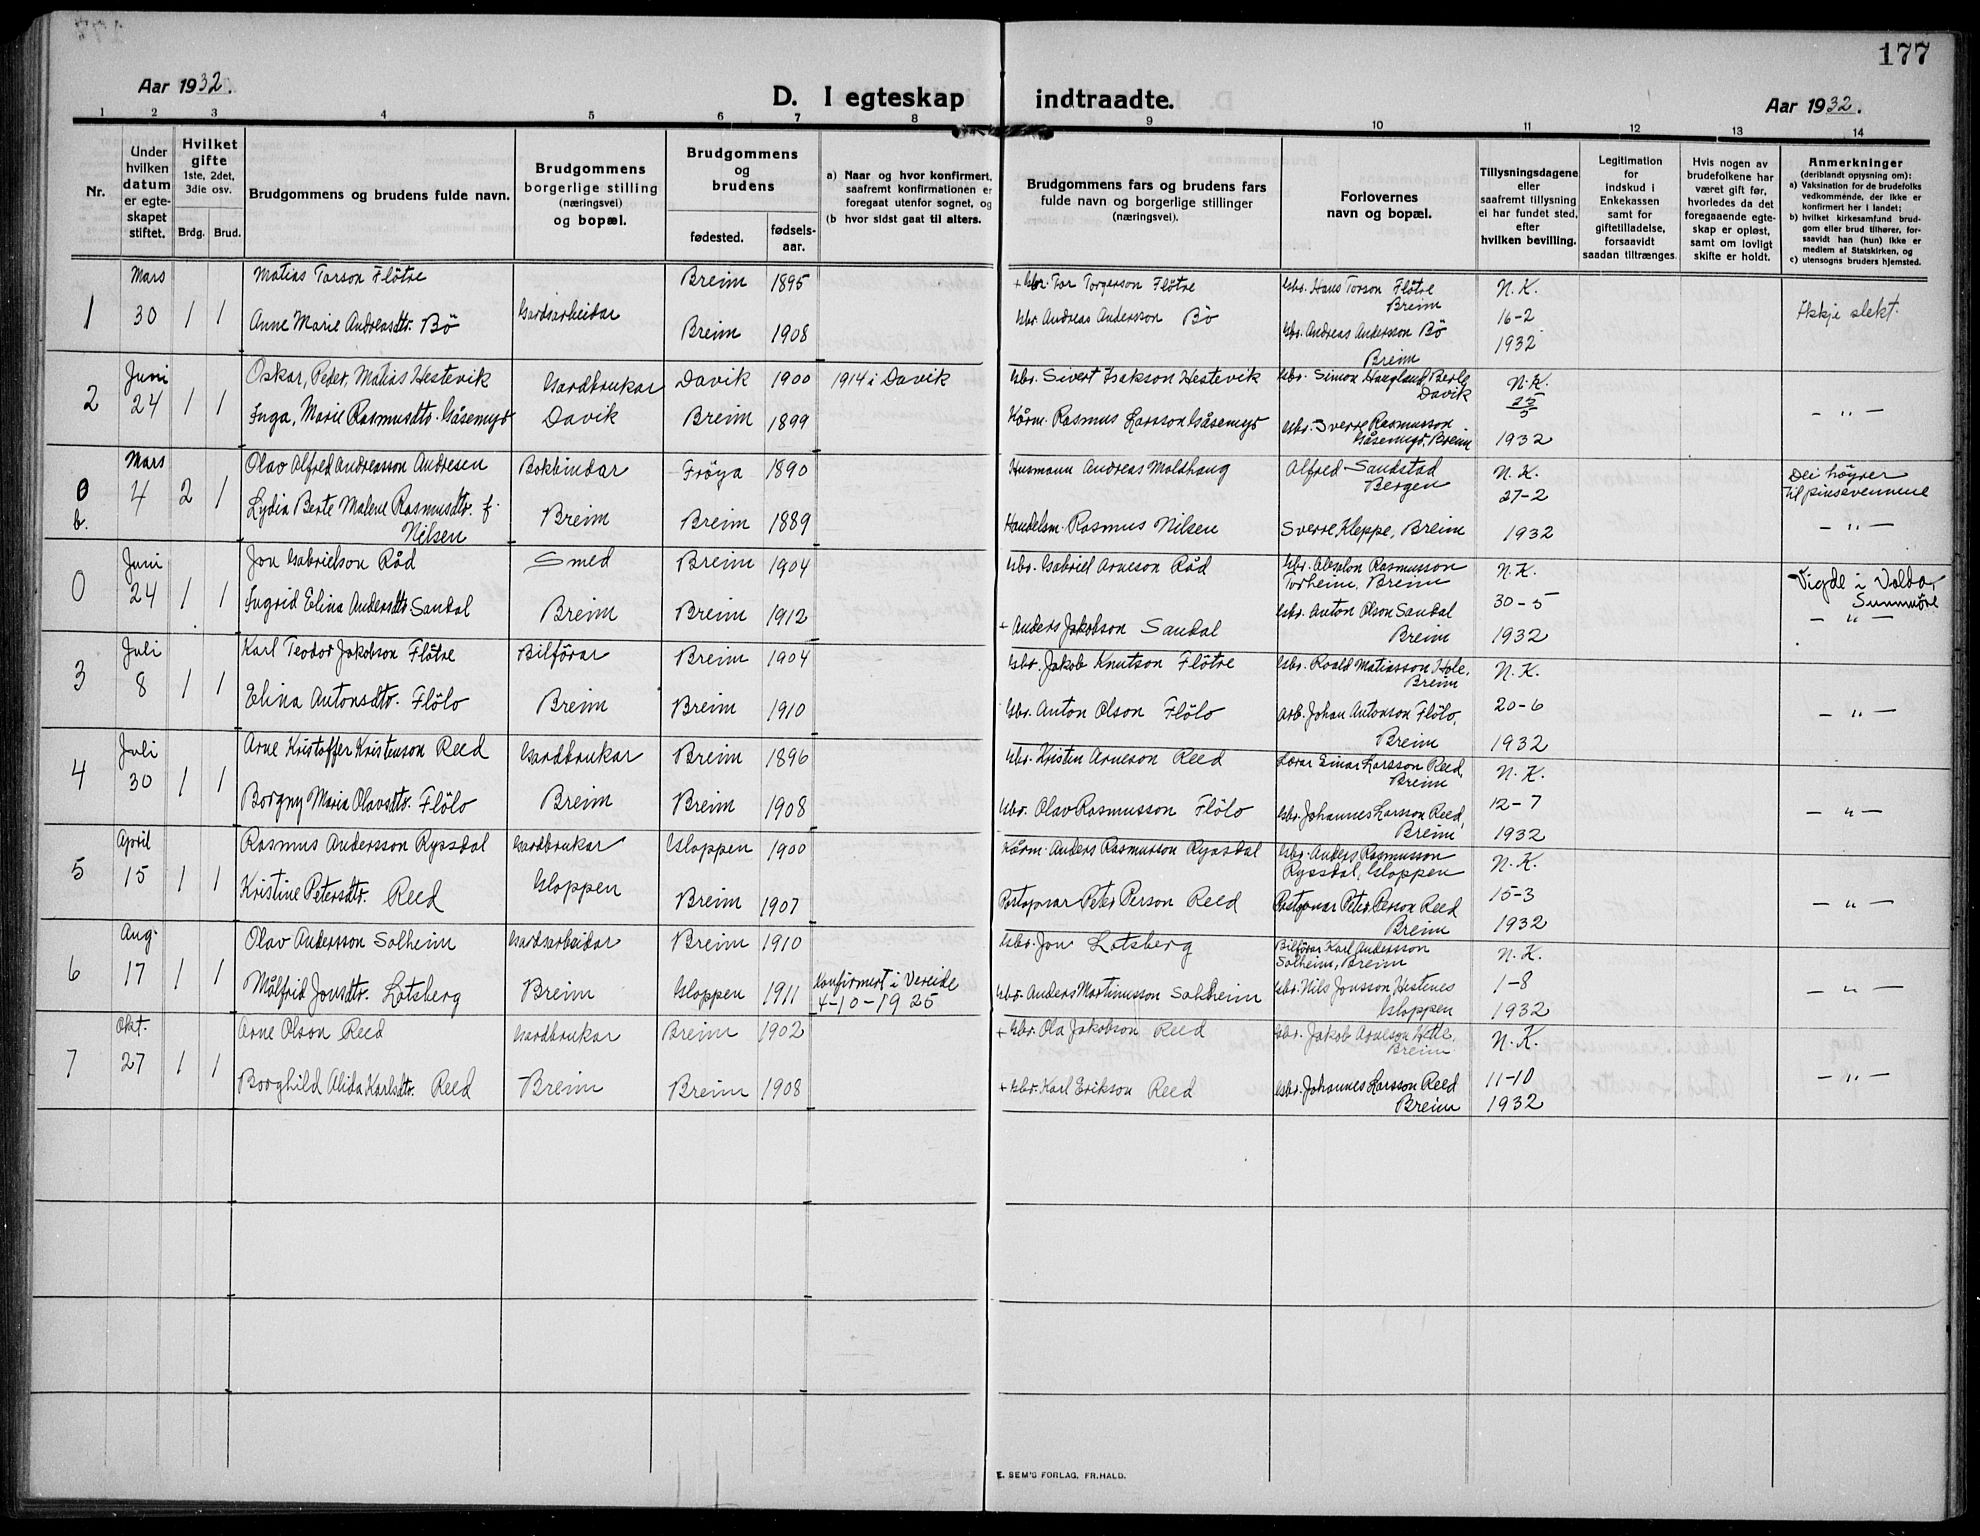 177
Aar 1932.
D. I egteskap indtraadte.
Aar 1932.
1 2 3 4 5 6 7 8 9 10 11 12 13 14
Nr.
Under hvilken datum er egteskapet stiftet.
Hvilket gifte 1ste, 2det, 3die osv.
Brdg. Brud.
Brudgommens og brudens fulde navn.
Brudgommens borgerlige stilling (næringsvei) og bopæl.
Brudgommens og brudens
fødested. fødselsaar.
a) Naar og hvor konfirmert, saafremt konfirmationen er foregaat utenfor sognet, og
(b hvor sidst gaat til alters.
Brudgommens fars og brudens fars fulde navn og borgerlige stillinger (næringsvei).
Forlovernes navn og bopæl.
Tillysningsdagene eller saafremt tillysning ei har fundet sted, efter hvilken bevilling.
Legitimation for indskud i Enkekassen samt for giftetilladelse, forsaavidt saadan tiltrænges.
Hvis nogen av brudefolkene har været gift før, hvorledes da det foregaaende egteskap er opløst, samt om lovligt skifte er holdt.
Anmerkninger (deriblandt oplysning om):
a) Vaksination for de brudefolks vedkommende, der ikke er konfirmert her i landet;
b) hvilket kirkesamfund brudgom eller brud tilhører, forsaavidt han (hun) ikke er medlem af Statskirken, og
c) utensogns bruders hjemsted.
1 Mars 30 1 1
Matias Torson Flötre Gardsarbeidar Breim 1895 + Gbr. Tor Torgerson Flötre Gbr. Hans Torson Flötre Breim N.K. 16-2 1932 Ikkje slekt.
Anne Marie Andreasdtr. Bö Breim 1908 Gbr. Andreas Andersson Bö Gbr. Andreas Andersson Bö Breim
2 Juni 24 1 1
Oskar, Peder, Matias Hestevik Gardbrukar Davik 1900 1914 i Davik Gbr. Sivert Isakson Hestevik Gbr. Simon Haugland, Berle Davik N.K. 25/5 1932 - " -
Inga, Marie Rasmusdtr. Gåsemyr Davik Breim 1899 Kårm. Rasmus Larsson Gåsemyr Gbr. Sverre Rasmusson Gåsemyr, Breim
0 b. Mars 4 2 1
Olav Alfred Andreasson Andresen Bokbindar Fröya 1890 Husmann Andreas Moldhaug Alfred Sandstad Bergen N.K. 27-2 1932 Dei höyrer til pinsevennene
Lydia Berte Malene Rasmusdtr. f. Nilsen Breim Breim 1889 Handelsm. Rasmus Nilsen Sverre Kleppe, Breim - " -
0 Juni 24 1 1
Jon Gabrielson Råd Smed Breim 1904 Gbr. Gabriel Arneson Råd Gbr. Absalon Rasmusson Torheim, Breim N.K. 30-5 1932 Vigde i Volda, Sunnmöre
Ingrid Elina Andersdtr. Sandal Breim Breim 1912 + Anders Jakobson Sandal Gbr. Anton Olson Sandal Breim - " -
3 Juli 8 1 1
Karl Teodor Jakobson Flötre Bilförar Breim 1904 Gbr. Jakob Knutson Flötre Gbr. Roald Matiasson Hole, Breim N.K. 20-6 1932
Elina Antonsdtr. Flölo Breim Breim 1910 Gbr. Anton Olson Flölo Arb. Johan Antonson Flölo, Breim - " -
4 Juli 30 1 1
Arne Kristoffer Kristenson Reed Gardbrukar Breim 1896 Gbr. Kristen Arneson Reed Lærar Einar Larsson Reed, Breim N.K. 12-7 1932
Borgny Maria Olavsdtr. Flölo Breim Breim 1908 Gbr. Olav Rasmusson Flölo Gbr. Johannes Larsson Reed, Breim - " -
5 April 15 1 1
Rasmus Andersson Ryssdal Gardbrukar Gloppen 1900 Kårm. Anders Rasmusson Ryssdal Gbr. Anders Rasmusson Ryssdal, Gloppen N.K. 15-3 1932
Kristine Petersdtr. Reed Gloppen Breim 1907 Postopnar Peter Person Reed Postopnar Peter Person Reed Breim - " -
6 Aug. 17 1 1
Olav Andersson Solheim Gardsarbeidar Breim 1910 Gbr. Jon Lotsberg Bilförar Karl Andersson Solheim, Breim N.K. 1-8 1932
Målfrid Jonsdtr. Lotsberg Breim Gloppen 1911 Konfirmert i Vereide 4-10-1925 Gbr. Anders Martinusson Solheim Gbr. Nils Jonsson Hestenes Gloppen - " -
7 Okt. 27 1 1
Arne Olson Reed Gardbrukar Breim 1902 + Gbr. Ola Jakobson Reed Gbr. Jakob Arneson Hetle, Breim N.K. 11-10 1932
Borghild Alida Karlsdtr. Reed Breim Breim 1908 + Gbr. Karl Erikson Reed Gbr. Johannes Larsson Reed Breim - " -
E. SEM'S FORLAG, FR.HALD.